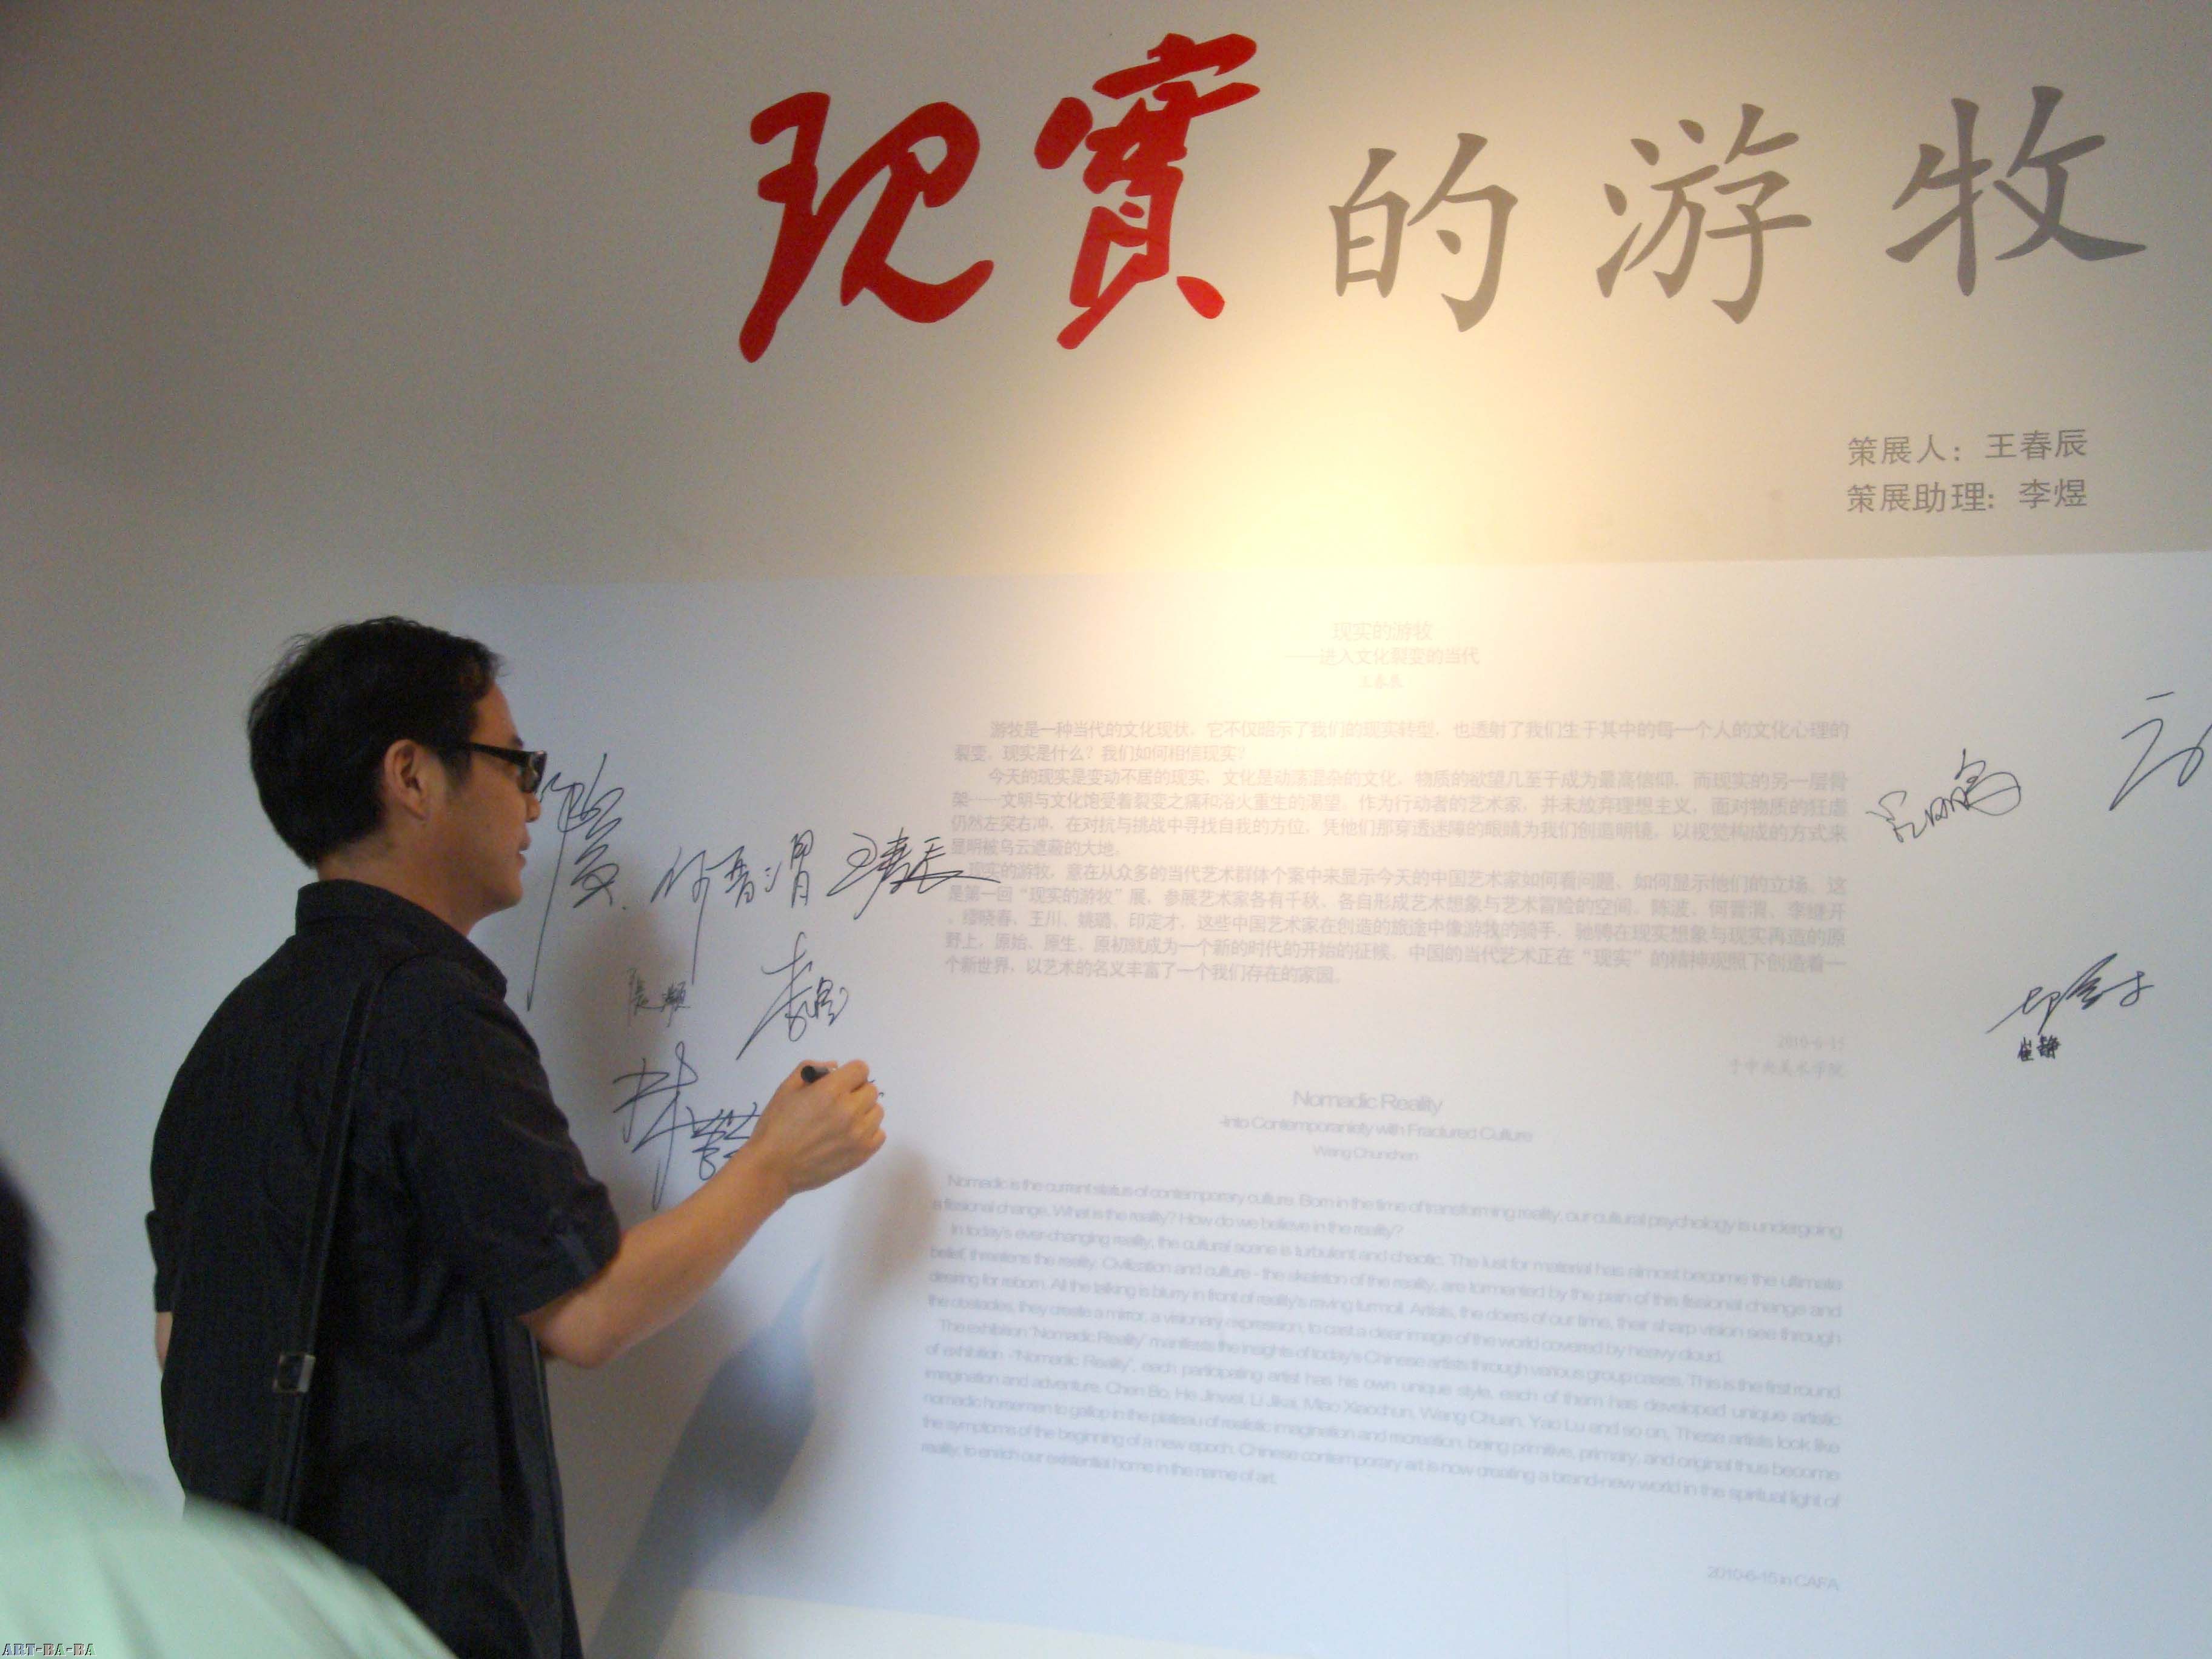 现實的游牧
策展人：王春辰
策展助理：李煜
现实的游牧
——进入文化裂变的当代
王春辰
游牧是一种当代的文化现状，它不仅暗示了我们的现实转型，也透射了我们生于其中的每一个人的文化心理的
裂变。现实是什么？我们如何相信现实？
今天的现实是变动不居的现实，文化是动荡混杂的文化，物质的欲望几至于成为最高信仰，而现实的另一层骨
架——文明与文化饱受着裂变之痛和浴火重生的渴望。作为行动者的艺术家，并未放弃理想主义，面对物质的狂虐
仍然左突右冲，在对抗与挑战中寻找自我的方位，凭他们那穿透迷障的眼睛为我们创造明镜，以视觉构成的方式来
显明被乌云遮蔽的大地。
现实的游牧，意在从众多的当代艺术群体个案中来显示今天的中国艺术家如何看问题、如何显示他们的立场。这
是第一回“现实的游牧”展，参展艺术家各有千秋，各自形成艺术想象与艺术冒险的空间。陈波、何晋渭、李继开
、缪晓春、王川、姚璐、印定才，这些中国艺术家在创造的旅途中像游牧的骑手，驰骋在现实想象与现实再造的原
野上，原始、原生、原初就成为一个新的时代的开始的征候，中国的当代艺术正在“现实”的精神观照下创造着一
个新世界，以艺术的名义丰富了一个我们存在的家园。
2010-6-15
于中央美术学院
Nomadic Reality
-Into Contemporaniety with Fractured Culture
Wang Chunchen
Nomadic is the current status of contemporary culture. Born in the time of transforming reality, our cultural psychology is undergoing
a fissional change. What is the reality? How do we believe in the reality?
In today's ever-changing reality, the cultural scene is turbulent and chaotic. The lust for material has almost become the ultimate
belief, threatens the reality. Civilization and culture - the skeleton of the reality, are tormented by the pain of this fissional change and
desiring for reborn. All the talking is blurry in front of reality's raving turmoil. Artists, the doers of our time, their sharp vision see through
the obstacles, they create a mirror, a visionary expression, to cast a clear image of the world covered by heavy cloud.
The exhibition 'Nomadic Reality' manifests the insights of today's Chinese artists through various group cases. This is the first round
of exhibition - 'Nomadic Reality', each participating artist has his own unique style, each of them has developed unique artistic
imagination and adventure. Chen Bo, He Jinwei, Li Jikai, Miao Xiaochun, Wang Chuan, Yao Lu and so on, These artists look like
nomadic horsemen to gallop in the plateau of realistic imagination and recreation, being primitive, primary, and original thus become
the symptoms of the beginning of a new epoch. Chinese contemporary art is now creating a brand-new world in the spiritual light of
reality, to enrich our existential home in the name of art.
2010-6-15 in CAFA
何晋渭
王春辰
張灏
李煜
印定才
崔静
ART-BA-BA